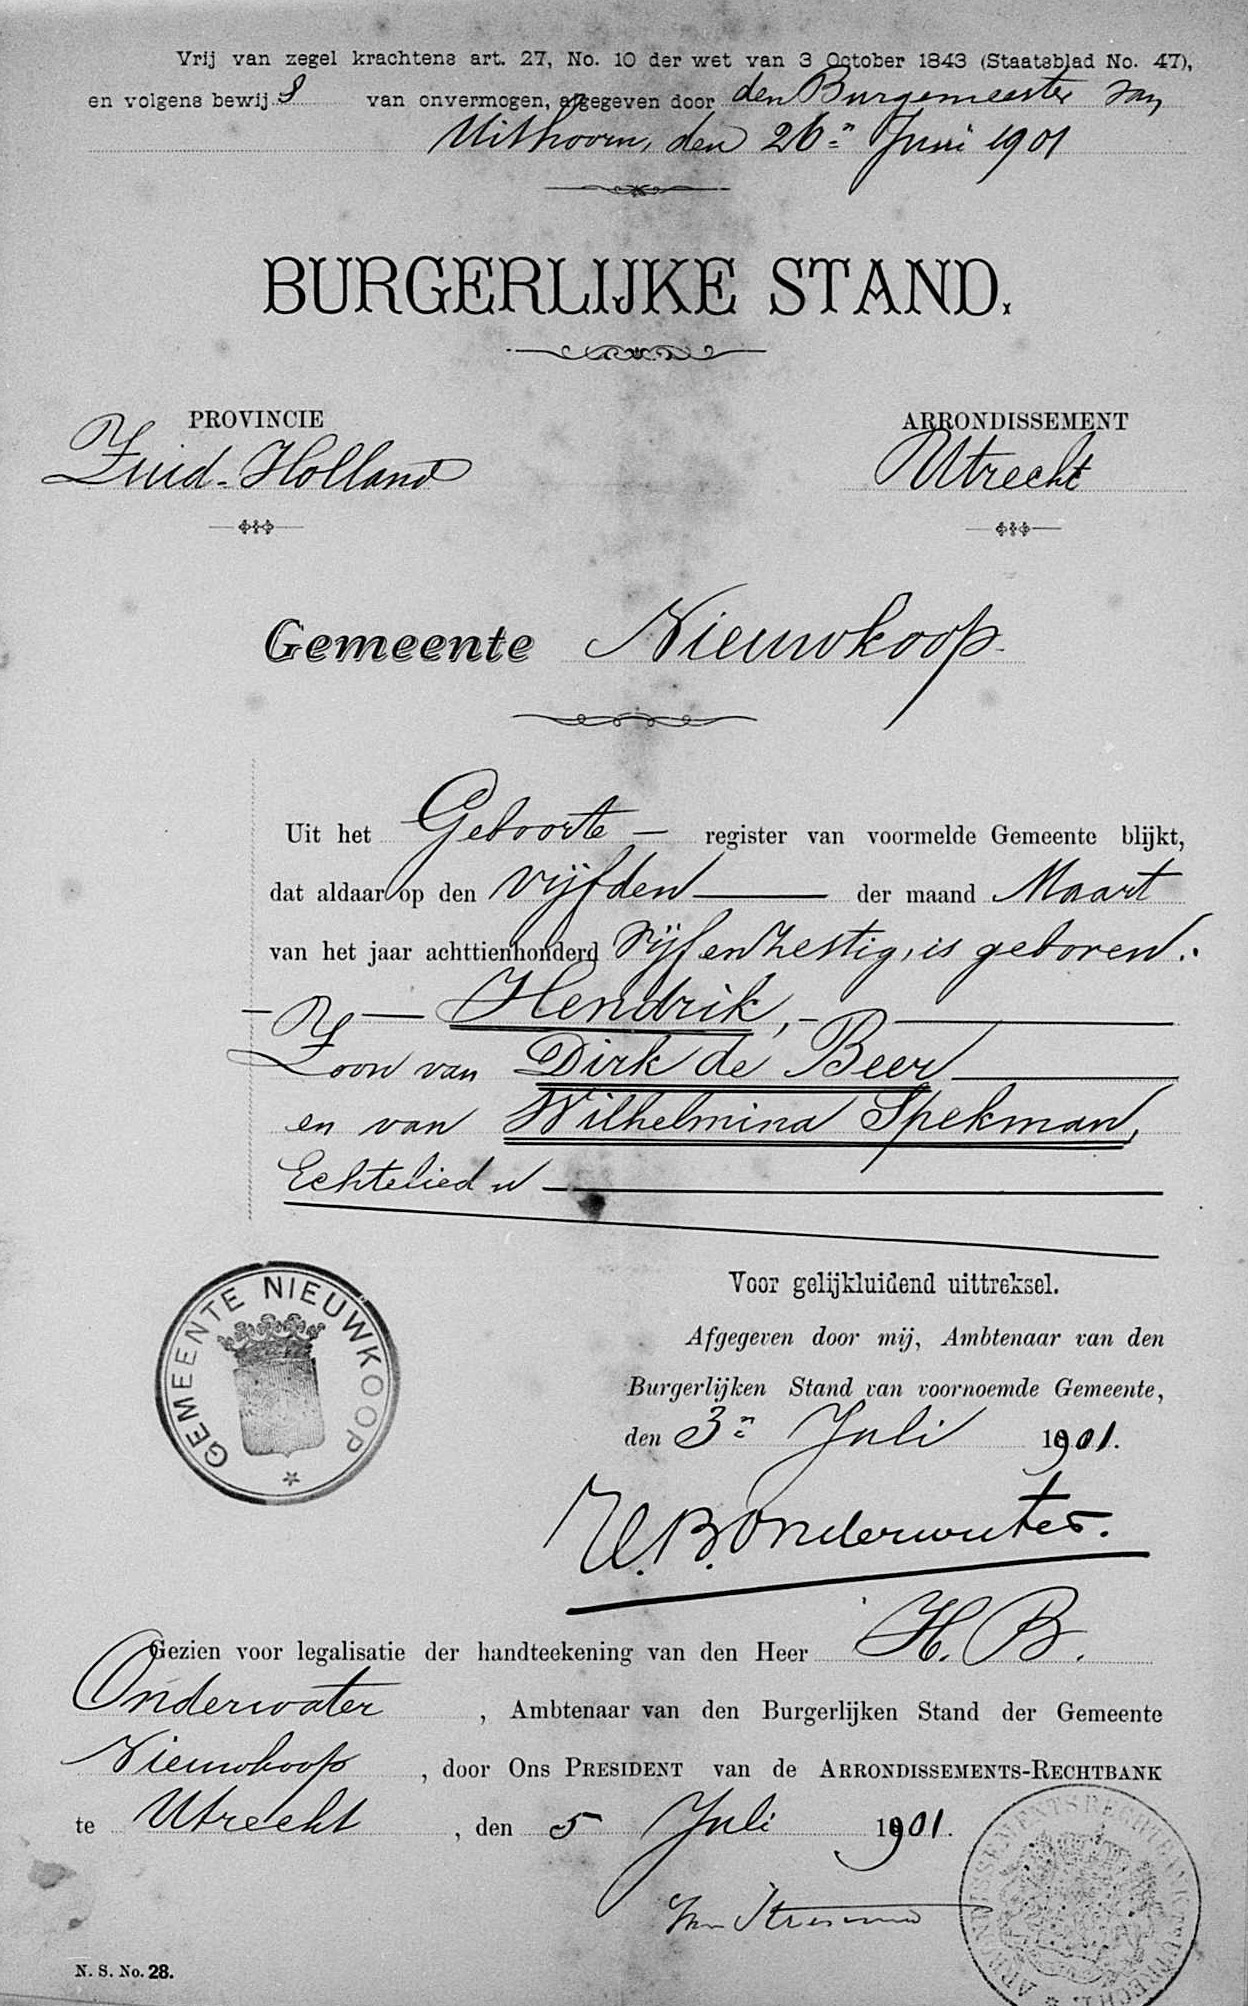 Vrij van zegel krachtens art. 27, No. 10 der wet van 3 October 1843 (Staatsblad No. 47),
en volgens bewijs van onvermogen, afgegeven door den Burgemeester van
Uithoorn, den 26n Juni 1901
BURGERLIJKE STAND.
PROVINCIE
Zuid-Holland
ARRONDISSEMENT
Utrecht
Gemeente Nieuwkoop
Uit het Geboorte — register van voormelde Gemeente blijkt,
dat aldaar op den vijfden — der maand Maart
van het jaar achttienhonderd vijf en zestig, is geboren:
— Hendrik, —
Zoon van Dirk de Beer —
en van Wilhelmina Spekman,
Echtelieden —
GEMEENTE NIEUWKOOP
Voor gelijkluidend uittreksel.
Afgegeven door mij, Ambtenaar van den
Burgerlijken Stand van voornoemde Gemeente,
den 3n Juli 1901.
H.B. Onderwater.
Gezien voor legalisatie der handteekening van den Heer H. B.
Onderwater, Ambtenaar van den Burgerlijken Stand der Gemeente
Nieuwkoop, door Ons PRESIDENT van de ARRONDISSEMENTS-RECHTBANK
te Utrecht, den 5 Juli 1901.
ARRONDISSEMENTS RECHTBANK UTRECHT
N. S. No. 28.